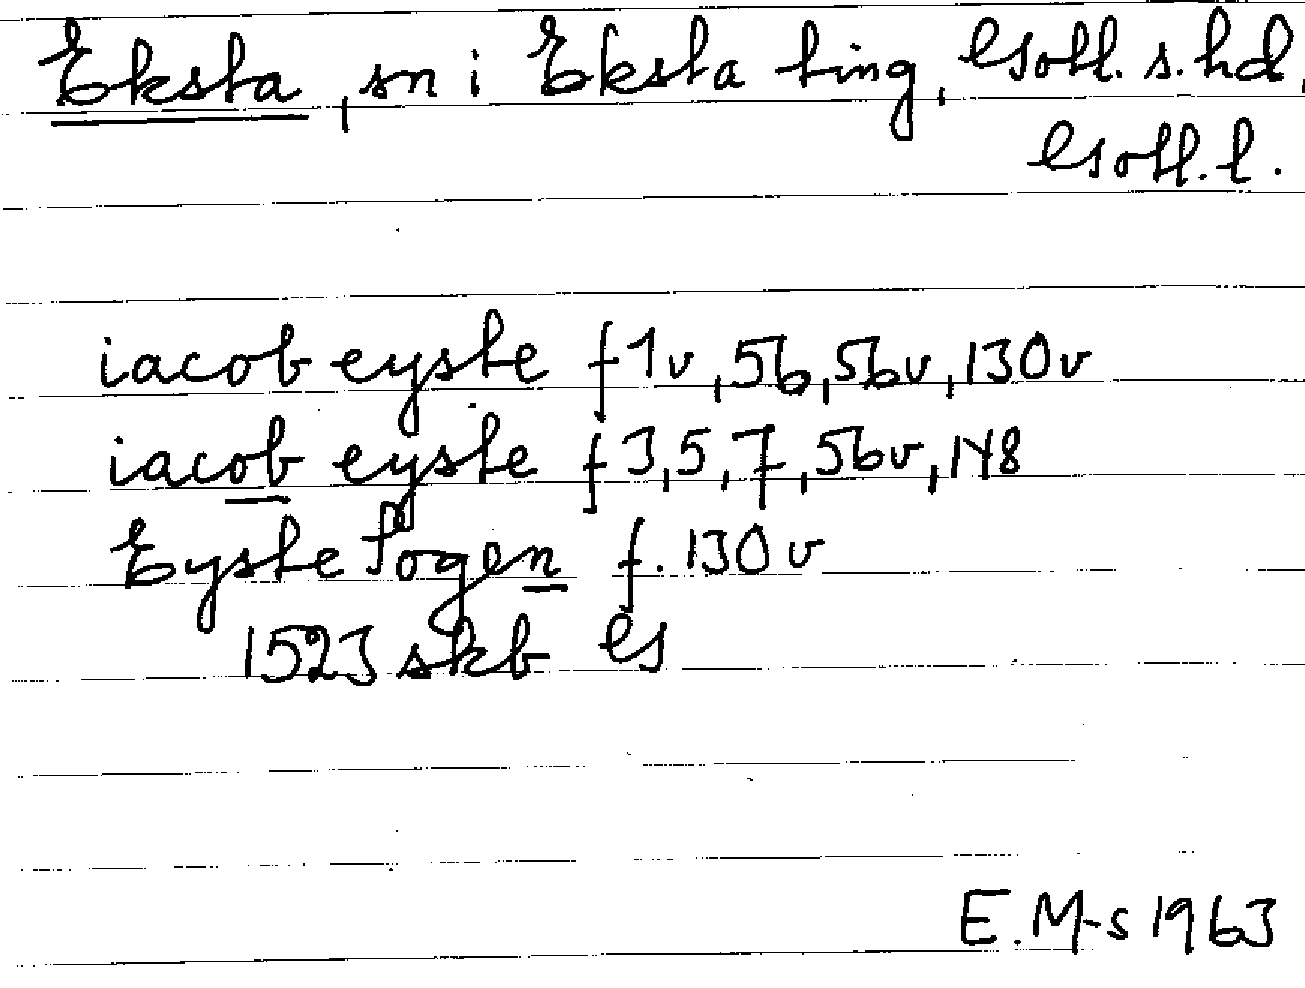 Eksta, sn i Eksta ting, Gotl. s. hd,
Gotl. l.
iacob eyste f 1v, 56, 56v, 130v
iacob eyste f 3, 5, 7, 56v, 148
Eyste sogen f. 130 v
1523 skb G
E. M-s 1963